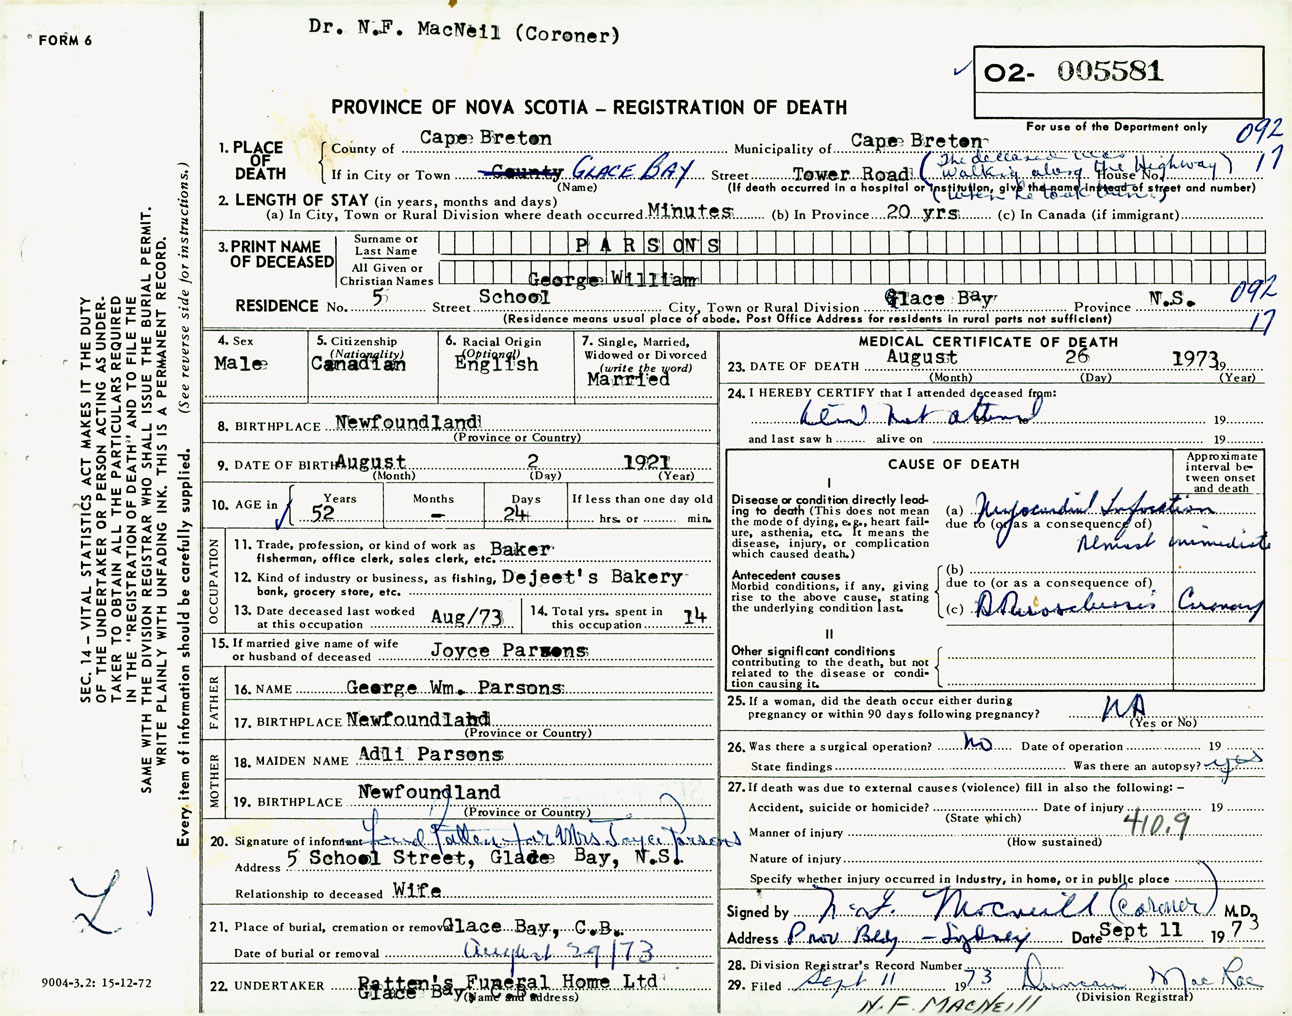 FORM 6
Dr. N.F. MacNeil (Coroner)
✓ O2- 005581
PROVINCE OF NOVA SCOTIA – REGISTRATION OF DEATH
For use of the Department only
092
17
1. PLACE OF DEATH
County of Cape Breton Municipality of Cape Breton
If in City or Town County GLACE BAY Street Tower Road House No.
(The deceased was walking along the Highway) (when he took )
(Name) (If death occurred in a hospital or institution, give the name instead of street and number)
2. LENGTH OF STAY (in years, months and days)
(a) In City, Town or Rural Division where death occurred Minutes (b) In Province 20 yrs (c) In Canada (if immigrant)
3. PRINT NAME OF DECEASED
Surname or Last Name PARSONS
All Given or Christian Names George William
RESIDENCE No. 5 Street School City, Town or Rural Division Glace Bay Province N.S.
092
17
(Residence means usual place of abode. Post Office Address for residents in rural parts not sufficient)
4. Sex
Male
5. Citizenship
(Nationality)
Canadian
6. Racial Origin
(Optional)
English
7. Single, Married, Widowed or Divorced
(write the word)
Married
8. BIRTHPLACE Newfoundland
(Province or Country)
9. DATE OF BIRTH August 2 1921
(Month) (Day) (Year)
10. AGE in
Years Months Days If less than one day old
52 – 24 hrs. or min.
OCCUPATION
11. Trade, profession, or kind of work as Baker
fisherman, office clerk, sales clerk, etc.
12. Kind of industry or business, as fishing, Dejeet's Bakery
bank, grocery store, etc.
13. Date deceased last worked at this occupation Aug/73
14. Total yrs. spent in this occupation 14
15. If married give name of wife or husband of deceased Joyce Parsons
FATHER
16. NAME George Wm. Parsons
17. BIRTHPLACE Newfoundland
(Province or Country)
MOTHER
18. MAIDEN NAME Adli Parsons
19. BIRTHPLACE Newfoundland
(Province or Country)
20. Signature of informant Patten for Mrs. Joyce Parsons
Address 5 School Street, Glade Bay, N.S.
Relationship to deceased Wife
21. Place of burial, cremation or removal Glace Bay, C.B.
Date of burial or removal August 29/73
22. UNDERTAKER Patten's Funeral Home Ltd
Glace Bay, C.B.
(Name and address)
MEDICAL CERTIFICATE OF DEATH
23. DATE OF DEATH August 26 1973 19
(Month) (Day) (Year)
24. I HEREBY CERTIFY that I attended deceased from:
did not attend 19
and last saw h alive on 19
CAUSE OF DEATH
Approximate interval between onset and death
I
Disease or condition directly leading to death (This does not mean the mode of dying, e.g., heart failure, asthenia, etc. It means the disease, injury, or complication which caused death.)
(a) Myocardial Infarction
due to (or as a consequence of)
Almost immediate
Antecedent causes
Morbid conditions, if any, giving rise to the above cause, stating the underlying condition last.
(b)
due to (or as a consequence of)
(c) Coronary
II
Other significant conditions
contributing to the death, but not related to the disease or condition causing it.
25. If a woman, did the death occur either during pregnancy or within 90 days following pregnancy? NA
(Yes or No)
26. Was there a surgical operation? No Date of operation 19
State findings Was there an autopsy? yes
27. If death was due to external causes (violence) fill in also the following: –
Accident, suicide or homicide? Date of injury 19
(State which)
410.9
Manner of injury
(How sustained)
Nature of injury
Specify whether injury occurred in industry, in home, or in public place
Signed by N.F. Macneill (Coroner) M.D.
Address Prov Bldg – Sydney Date Sept 11 1973
28. Division Registrar's Record Number
29. Filed Sept 11 1973 Duncan MacRae
(Division Registrar)
N.F. MACNEILL
SEC. 14 – VITAL STATISTICS ACT MAKES IT THE DUTY
OF THE UNDERTAKER OR PERSON ACTING AS UNDER.
TAKER TO OBTAIN ALL THE PARTICULARS REQUIRED
IN THE "REGISTRATION OF DEATH" AND TO FILE THE
SAME WITH THE DIVISION REGISTRAR WHO SHALL ISSUE THE BURIAL PERMIT.
WRITE PLAINLY WITH UNFADING INK. THIS IS A PERMANENT RECORD.
Every item of information should be carefully supplied. (See reverse side for instructions.)
9004-3.2: 15-12-72